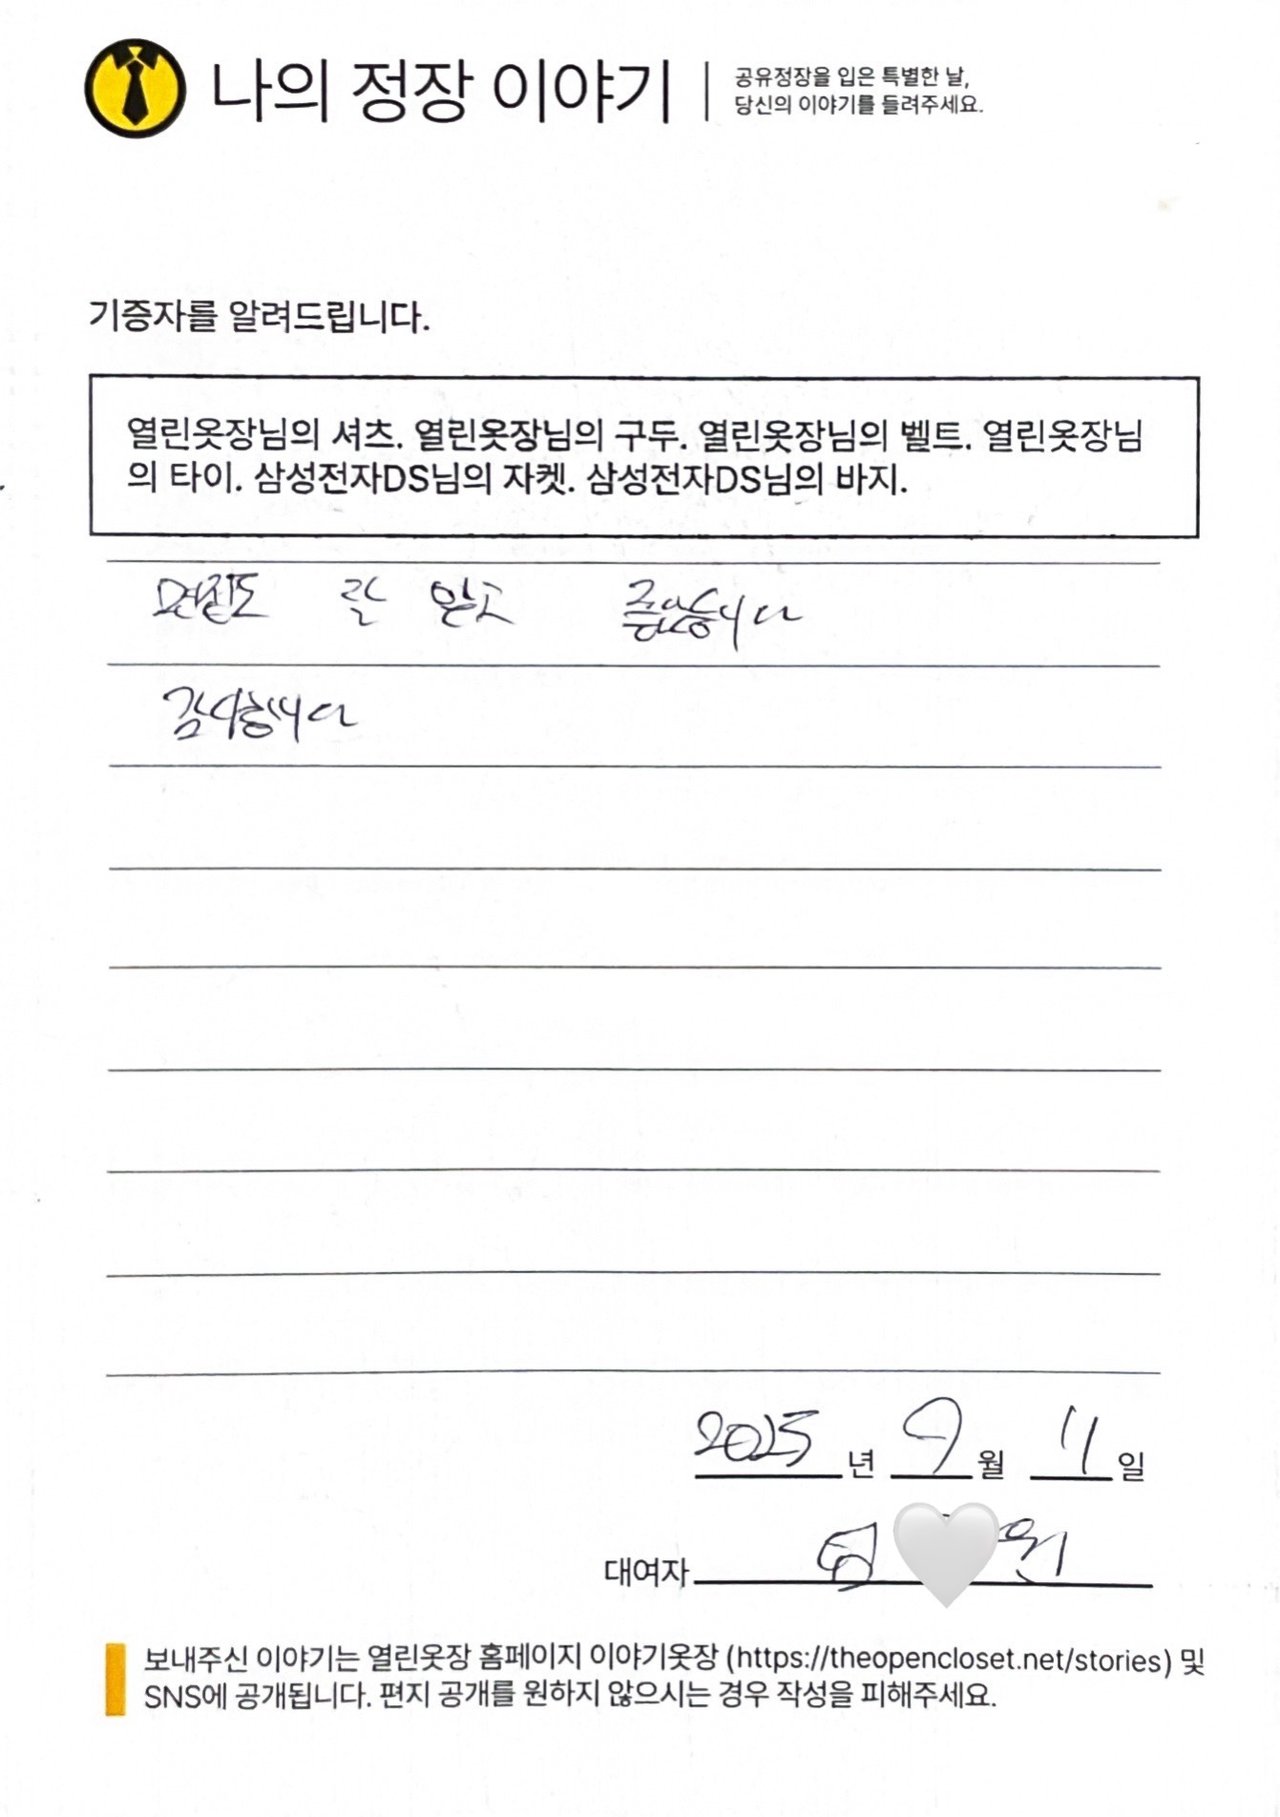 나의 정장 이야기
공유정장을 입은 특별한 날,
당신의 이야기를 들려주세요.
기증자를 알려드립니다.
열린옷장님의 셔츠. 열린옷장님의 구두. 열린옷장님의 벨트. 열린옷장님
의 타이. 삼성전자DS님의 자켓. 삼성전자DS님의 바지.
면접도 잘 보고
감사합니다
2025년 9월 11일
대여자
보내주신 이야기는 열린옷장 홈페이지 이야기옷장 (https://theopencloset.net/stories) 및
SNS에 공개됩니다. 편지 공개를 원하지 않으시는 경우 작성을 피해주세요.